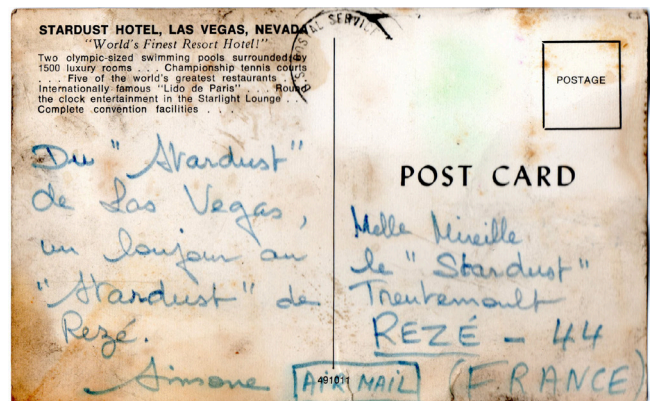 STARDUST HOTEL, LAS VEGAS, NEVADA
"World's Finest Resort Hotel!"
Two olympic-sized swimming pools surrounded by
1500 luxury rooms . . . Championship tennis courts
. . . Five of the world's greatest restaurants . . .
Internationally famous "Lido de Paris" . . . Round
the clock entertainment in the Starlight Lounge . . .
Complete convention facilities . . .
U.S. POSTAL SERVICE
POSTAGE
POST CARD
Du "Stardust"
de Las Vegas,
un bonjour au
"Stardust" de
Rezé.
Simone
Melle Mireille
le "Stardust"
Trentemoult
REZÉ - 44
(FRANCE)
AIR MAIL
491011